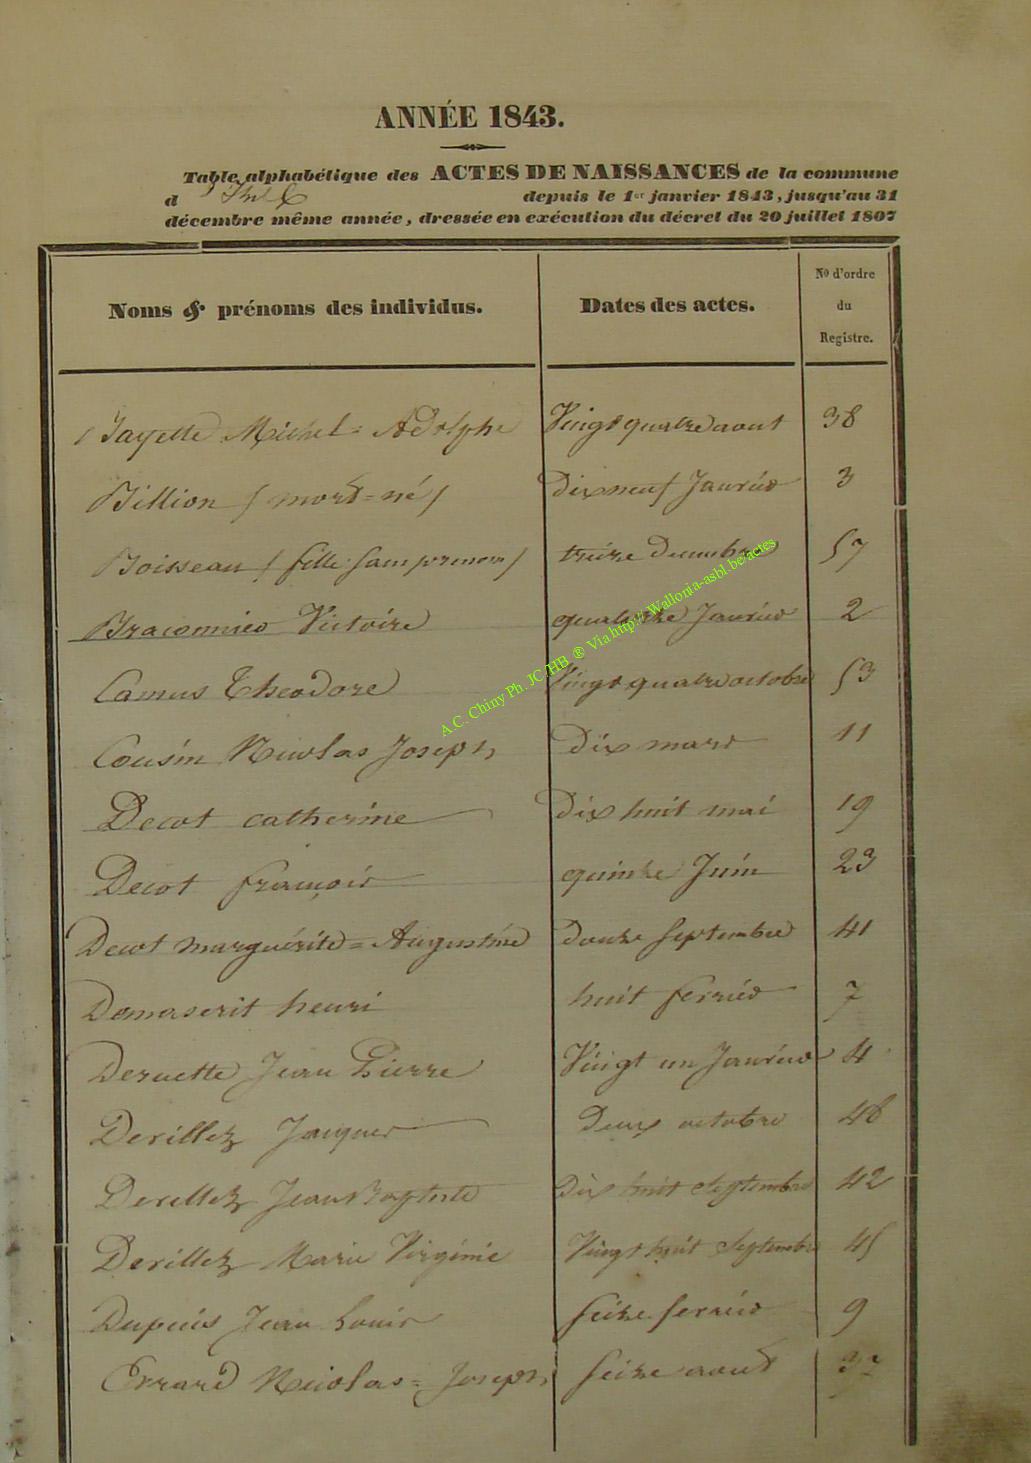 ANNÉE 1843.
Table alphabétique des ACTES DE NAISSANCES de la commune
d depuis le 1er janvier 1843, jusqu'au 31
décembre même année, dressée en exécution du décret du 20 juillet 1807
Noms & prénoms des individus. Dates des actes. No d'ordre
du
Registre.
Michel = Adolphe Vingt quatre aout 38
Billion ( mort = né ) Dix neuf Janvier 3
Boisseau ( fille sans prenom ) treize Decembre 57
Braconnier Victoire quatorze Janvier 2
Camus Theodore Vingt quatre octobre 53
Cousin Nicolas Joseph Dix mars 11
Decot catherine Dix huit mai 19
Decot françois quinze Juin 23
Decot marguérite = Augustine Douze septembre 41
henri huit fevrier 7
Jean Pierre Vingt un Janvier 4
Devillez Jacques Deux octobre 46
Devillez Jean Baptiste Dix huit Septembre 42
Devillez Marie Virginie Vingt huit Septembre 45
Dupuis Jean Louis seize fevrier 9
Errard Nicolas = Joseph seize aout
A.C. Chiny Ph. JC HB ® Via http://Wallonia-asbl.be/actes